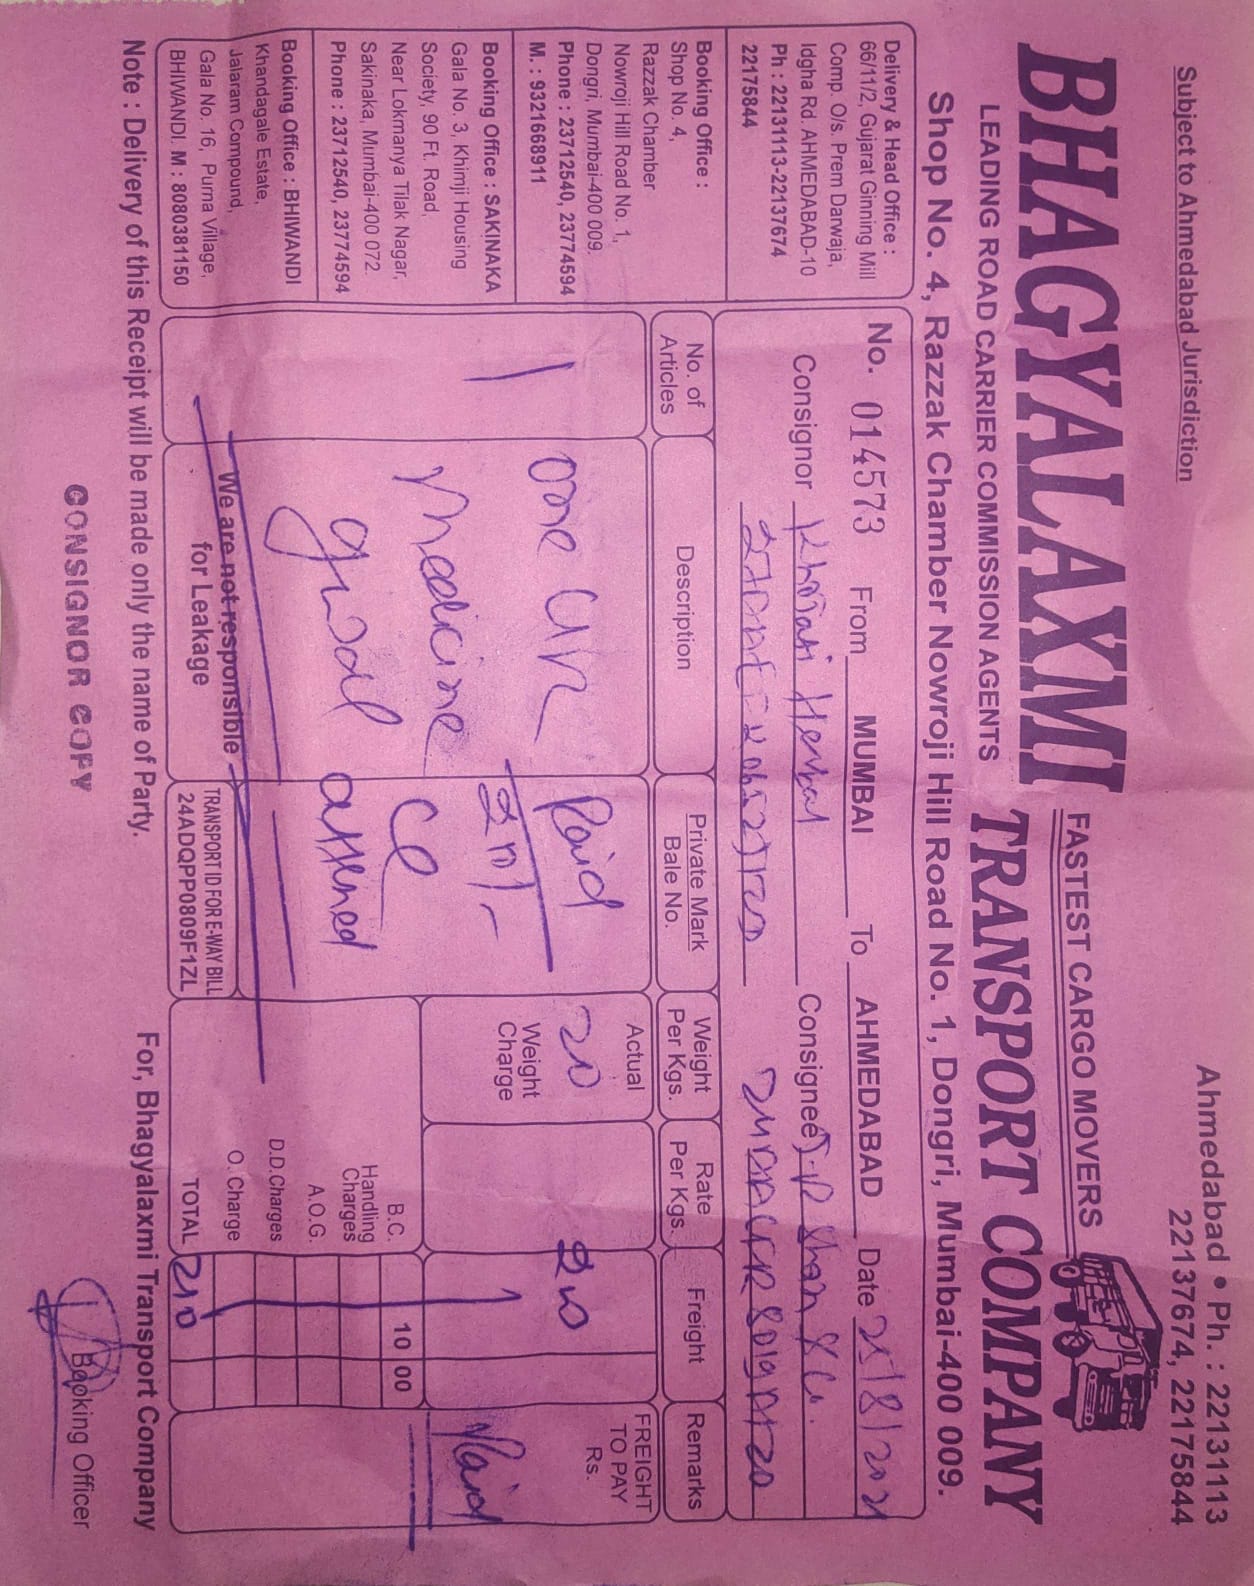 Subject to Ahmedabad Jurisdiction
Ahmedabad • Ph. : 22131113
22137674, 22175844
FASTEST CARGO MOVERS
BHAGYALAXMI TRANSPORT COMPANY
LEADING ROAD CARRIER COMMISSION AGENTS
Shop No. 4, Razzak Chamber Nowroji Hill Road No. 1, Dongri, Mumbai-400 009.
Delivery & Head Office :
66/11/2, Gujarat Ginning Mill
Comp. O/s. Prem Darwaja,
Idgha Rd. AHMEDABAD-10
Ph : 22131113-22137674
22175844
Booking Office :
Shop No. 4,
Razzak Chamber
Nowroji Hill Road No. 1,
Dongri, Mumbai-400 009.
Phone : 23712540, 23774594
M. : 9321668911
Booking Office : SAKINAKA
Gala No. 3, Khimji Housing
Society, 90 Ft. Road,
Near Lokmanya Tilak Nagar,
Sakinaka, Mumbai-400 072.
Phone : 23712540, 23774594
Booking Office : BHIWANDI
Khandagale Estate,
Jalaram Compound,
Gala No. 16, Purna Village,
BHIWANDI. M : 8080381150
No. 014573 From MUMBAI To AHMEDABAD Date 25/8/2021
Consignor Herbal Consignee Shah & Co.
No. of Articles
Description
Private Mark
Bale No.
Weight Per Kgs.
Rate Per Kgs.
Freight
Remarks
1
One
Medicine
Paid
Actual
20
Weight Charge
200
FREIGHT TO PAY Rs.
Paid
B.C. 10 00
Handling Charges
A.O.G.
D.D.Charges
O. Charge
TOTAL 210
We are not responsible
for Leakage
TRANSPORT ID FOR E-WAY BILL
24ADQPP0809F1ZL
Note : Delivery of this Receipt will be made only the name of Party.
For, Bhagyalaxmi Transport Company
CONSIGNOR COPY
Booking Officer